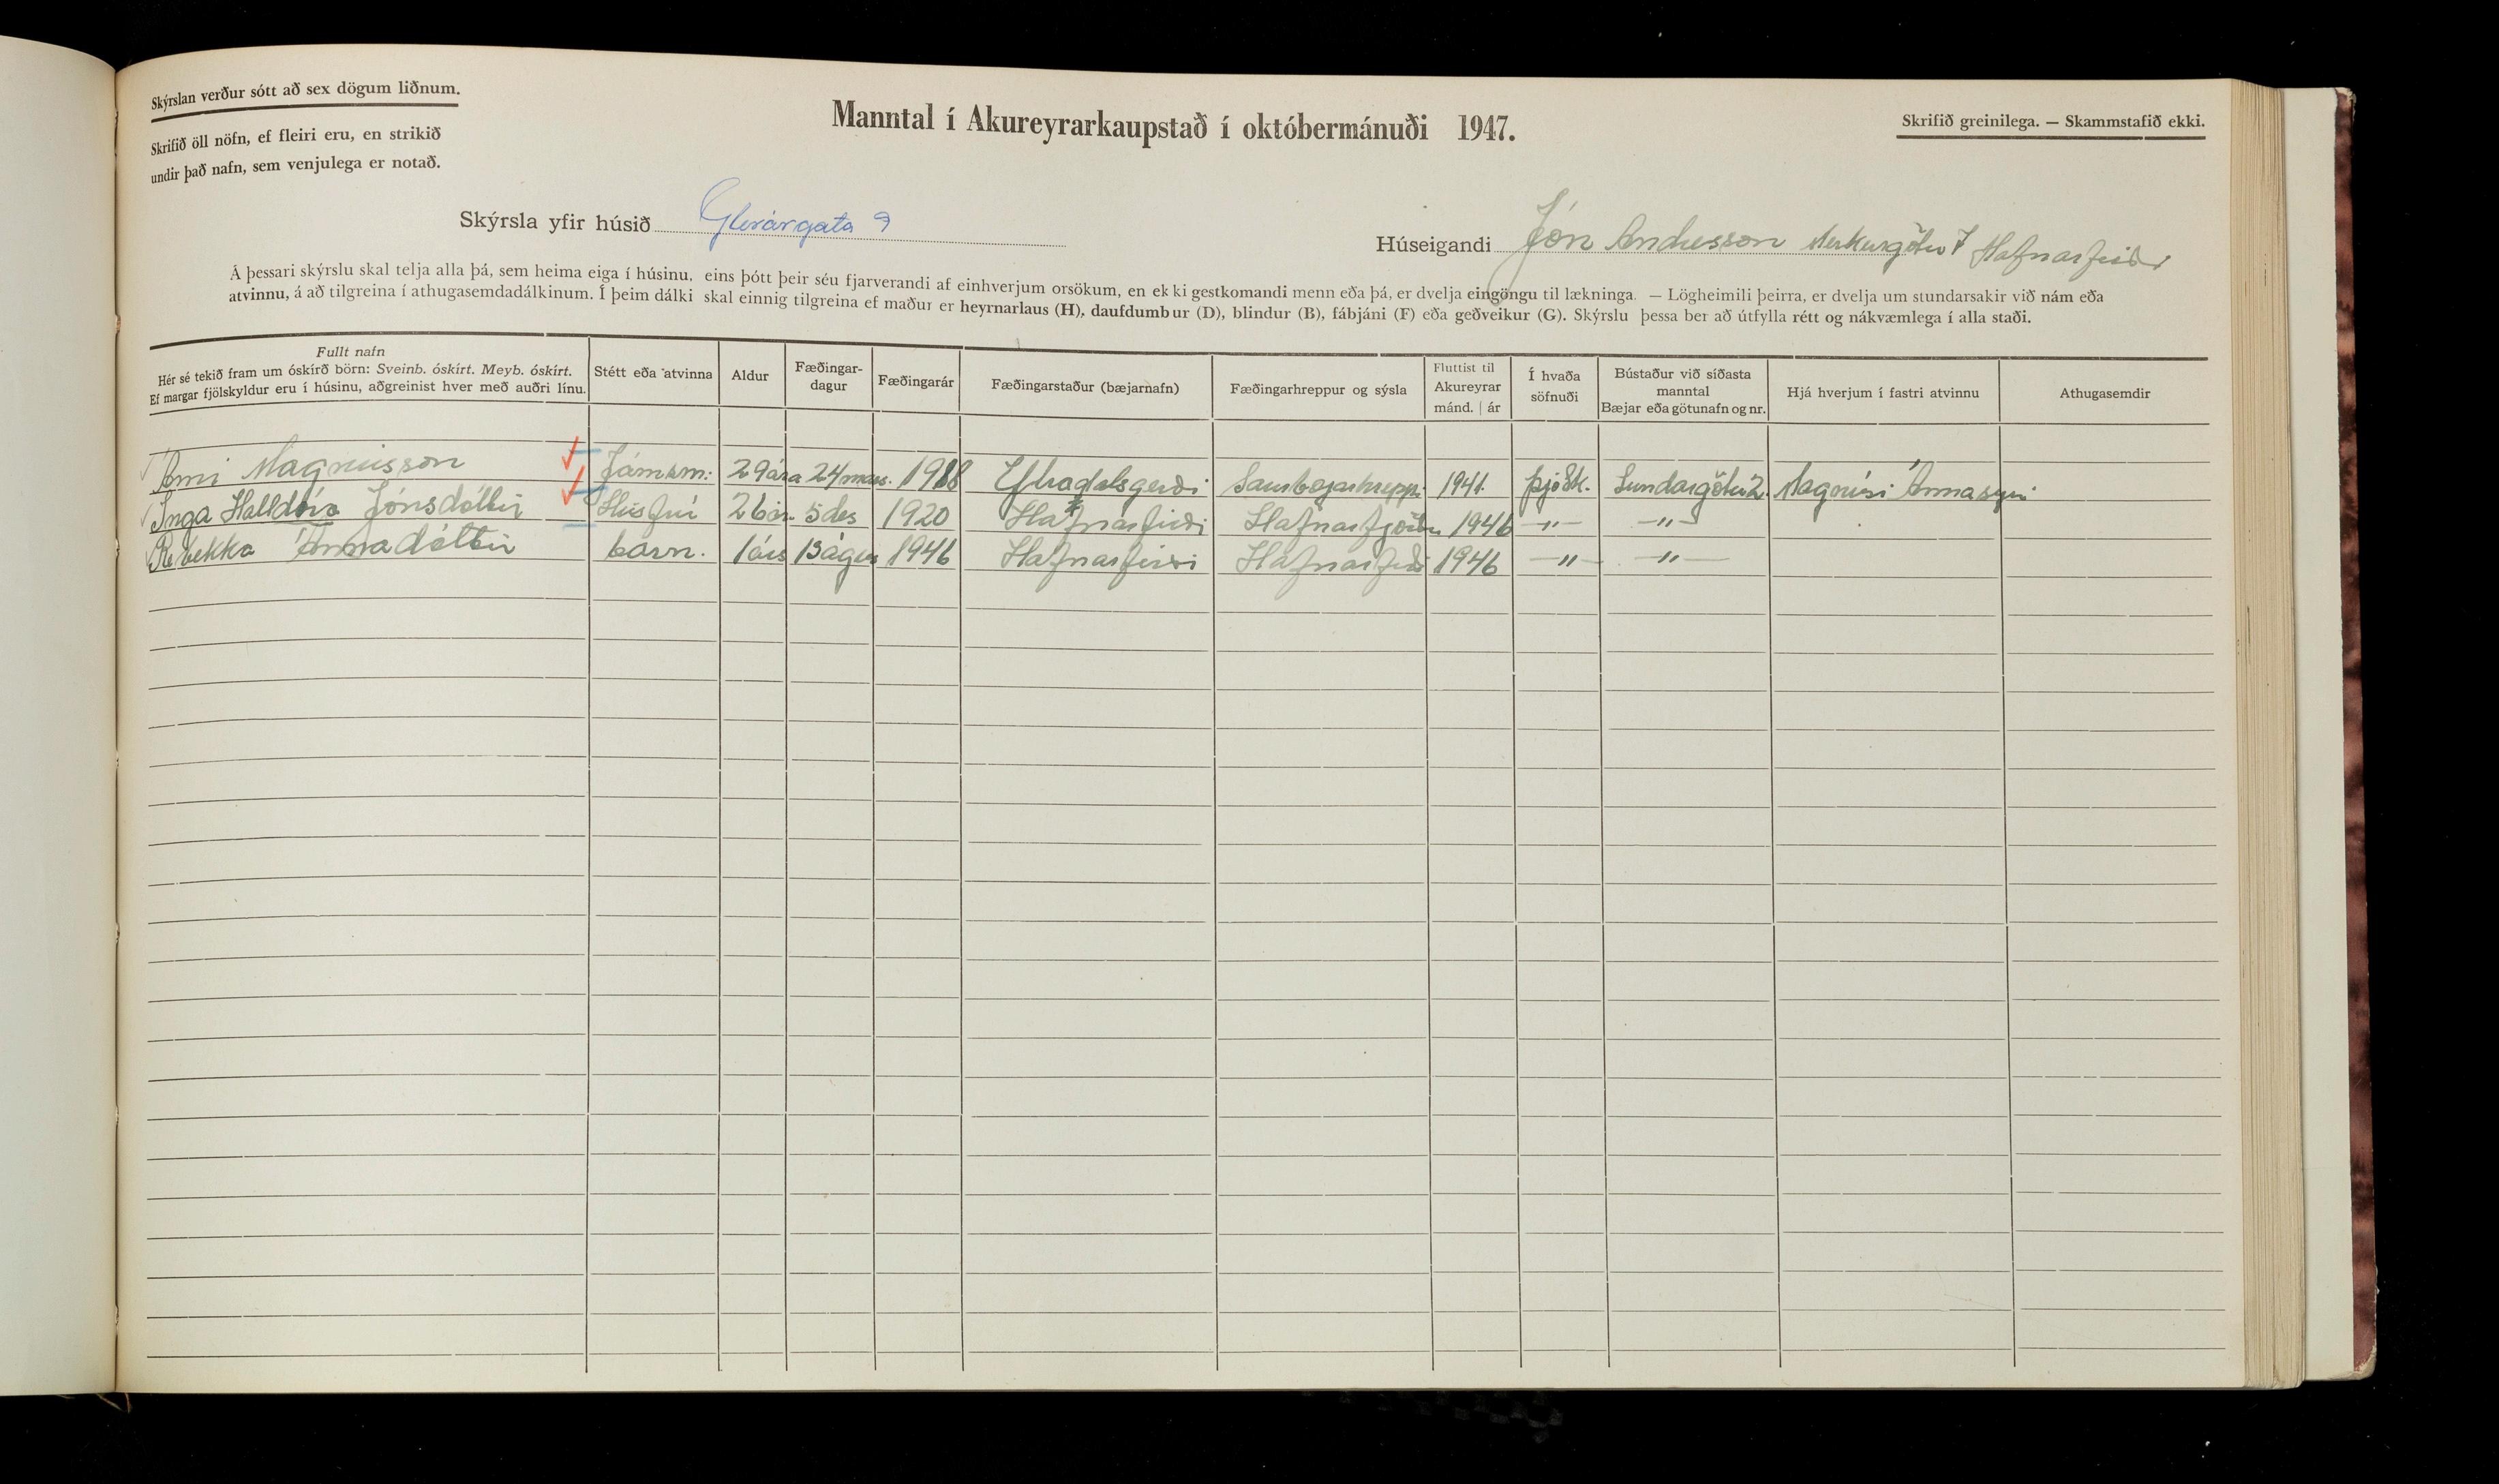 Skýrslan verður sótt að sex dögum liðnum.
Skrifið öll nöfn, ef fleiri eru, en strikið
undir það nafn, sem venjulega er notað.
Manntal í Akureyrarkaupstað í októbermánuði 1947.
Skrifið greinilega. — Skammstafið ekki.
Skýrsla yfir húsið Glerárgata 9
Húseigandi Jón Andresson Merkurgötu 7 Hafnarfirði
Á þessari skýrslu skal telja alla þá, sem heima eiga í húsinu, eins þótt þeir séu fjarverandi af einhverjum orsökum, en ekki gestkomandi menn eða þá, er dvelja eingöngu til lækninga. — Lögheimili þeirra, er dvelja um stundarsakir við nám eða
atvinnu, á að tilgreina í athugasemdadálkinum. Í þeim dálki skal einnig tilgreina ef maður er heyrnarlaus (H), daufdumbur (D), blindur (B), fábjáni (F) eða geðveikur (G). Skýrslu þessa ber að útfylla rétt og nákvæmlega í alla staði.
Fullt nafn
Hér sé tekið fram um óskírð börn: Sveinb. óskírt. Meyb. óskírt.
Ef margar fjölskyldur eru í húsinu, aðgreinist hver með auðri línu.
Stétt eða atvinna
Aldur
Fæðingar-
dagur
Fæðingarár
Fæðingarstaður (bæjarnafn)
Fæðingarhreppur og sýsla
Fluttist til
Akureyrar
mánd. | ár
Í hvaða
söfnuði
Bústaður við síðasta
manntal
Bæjar eða götunafn og nr.
Hjá hverjum í fastri atvinnu
Athugasemdir
Árni Magnússon Járnsm: 29 ára 24 mars. 1918 Saurbæjarhreppi 1941. þjóðk. Lundargötu 2. Magnúsi Árnasyni
Inga Halldóra Jónsdóttir Húsfrú 26 ár. 5 des 1920 Hafnarfirði Hafnarfjörður 1946 —"— —"—
Rebekka Árnadóttir barn. 1 árs 13 ágús 1946 Hafnarfirði Hafnarfirði 1946 —"— —"—